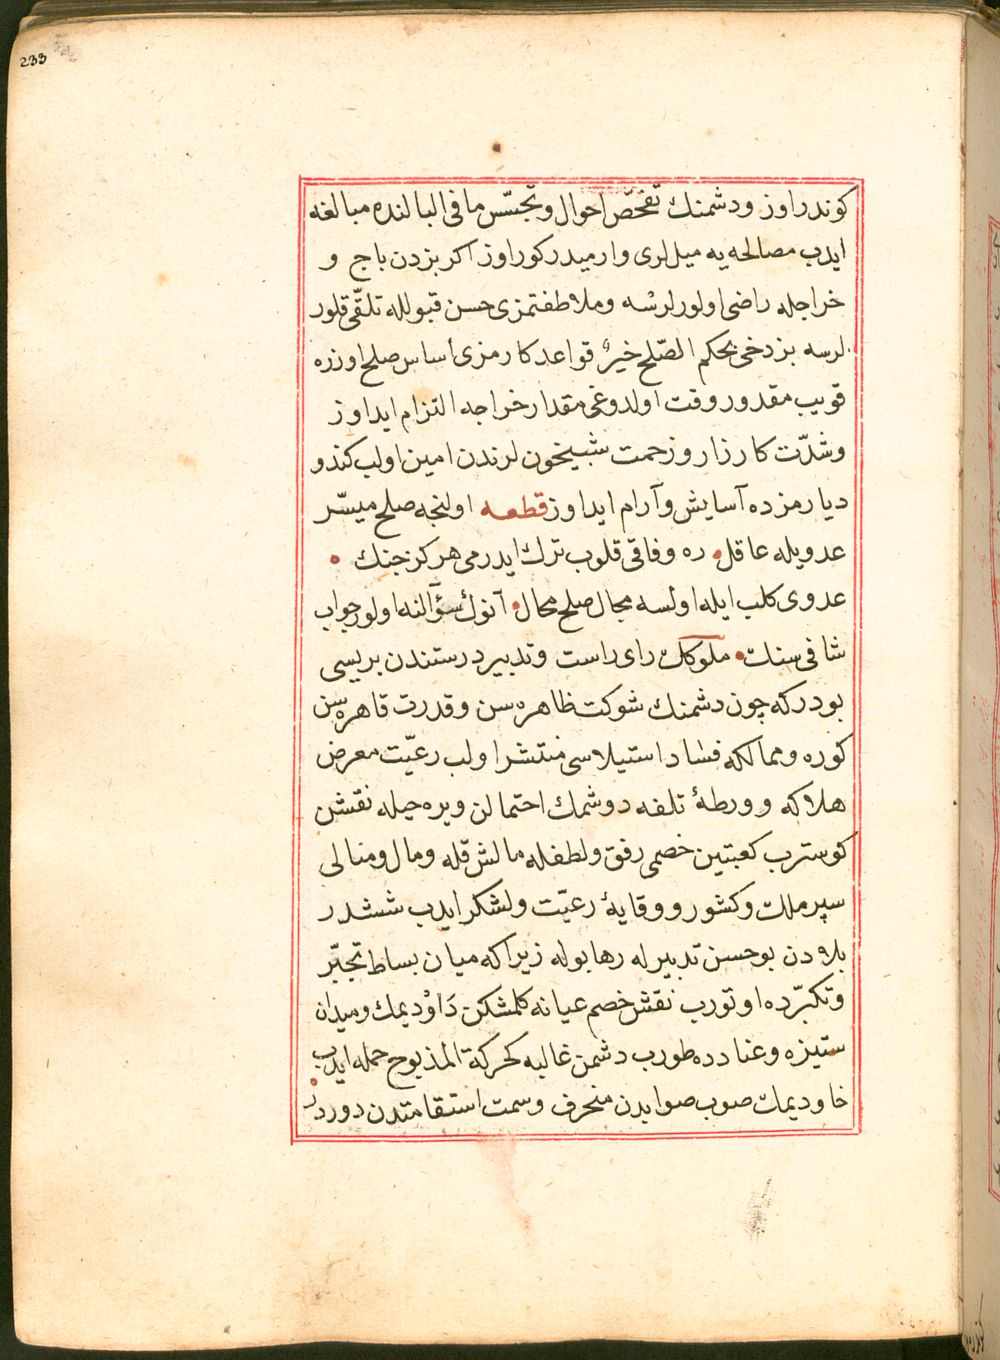 233
كوندراوز ودشمنك تفحّص احوال وتجسّس مافى البالنده مبالغه
ايدب مصالحه يه ميللرى وارميدركوراوز اكر بزدن باج و
خراجله راضى اولورلرسه وملاطفتمزى حسن قبولله تلقّى قلور
لرسه بزدخى بحكم الصّلح خيرٌ قواعد كارمزى اساس صلح اوزره
قويب مقدور وقت اولدوغى مقدار خراجه التزام ايداوز
وشدّت كارزار وزحمت شبيخون لرندن امين اولب كندو
ديارمزده آسايش وآرام ايداوز قطعه اولنجه صلح ميسّر
عدويله عاقل ره وفاقى قلوب ترك ايدرمى هركز جنك
عدوى كلب ايله اولسه مجال صلح محال آنوك سؤالنه اولور جواب
شافى سنك ملوكك راى راست وتدبير درستندن بريسى
بودركه چون دشمنك شوكت ظاهره سن وقدرت قاهره سن
كوره وممالكه فساد استيلاسى منتشر اولب رعيّت معرض
هلاكه وورطهٔ تلفه دوشمك احتمالن ويره حيله نقشن
كوسترب كعبتين خصمى رفق ولطفله مالش قله ومال ومنالى
سپر ملك وكشور ووقايهٔ رعيّت ولشكر ايدب ششدر
بلادن بوحسن تدبيرله رها بوله زيراكه ميان بساط تجبّر
وتكبّرده اوتورب نقش خصم عيانه كلمشكن دَاوْ ديمك وميدان
ستيزه وعنادده طورب دشمن غالبه كحركة المذبوح حمله ايدب
خاو ديمك صوب صوابدن منحرف وسمت استقامتدن دوردر